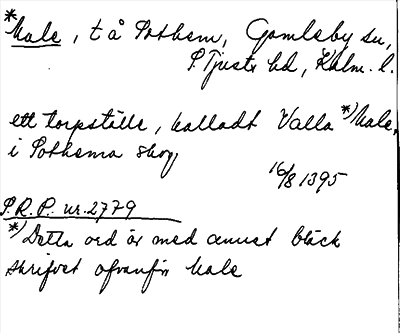 *Male, t å Pothem, Gamleby sn,
S Tjusts hd, Kalm. l.
ett torpställe, kalladt Valla *) Male,
i Pothems skog
16/8 1395
P.R.P. nr. 2779
*) Detta ord är med annat bläck
skrifvet ofvanför Male